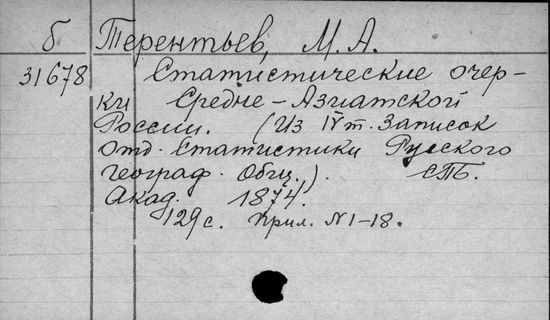 б Терентьев, М. А.
31678 Статистические очер-
ки Средне-Азиатской
России. (Из IV т. Записок
Отд. Статистики Русского
географ. Общ.). СПб.
Акад. 1874.
129 с. Прил. N 1-18.